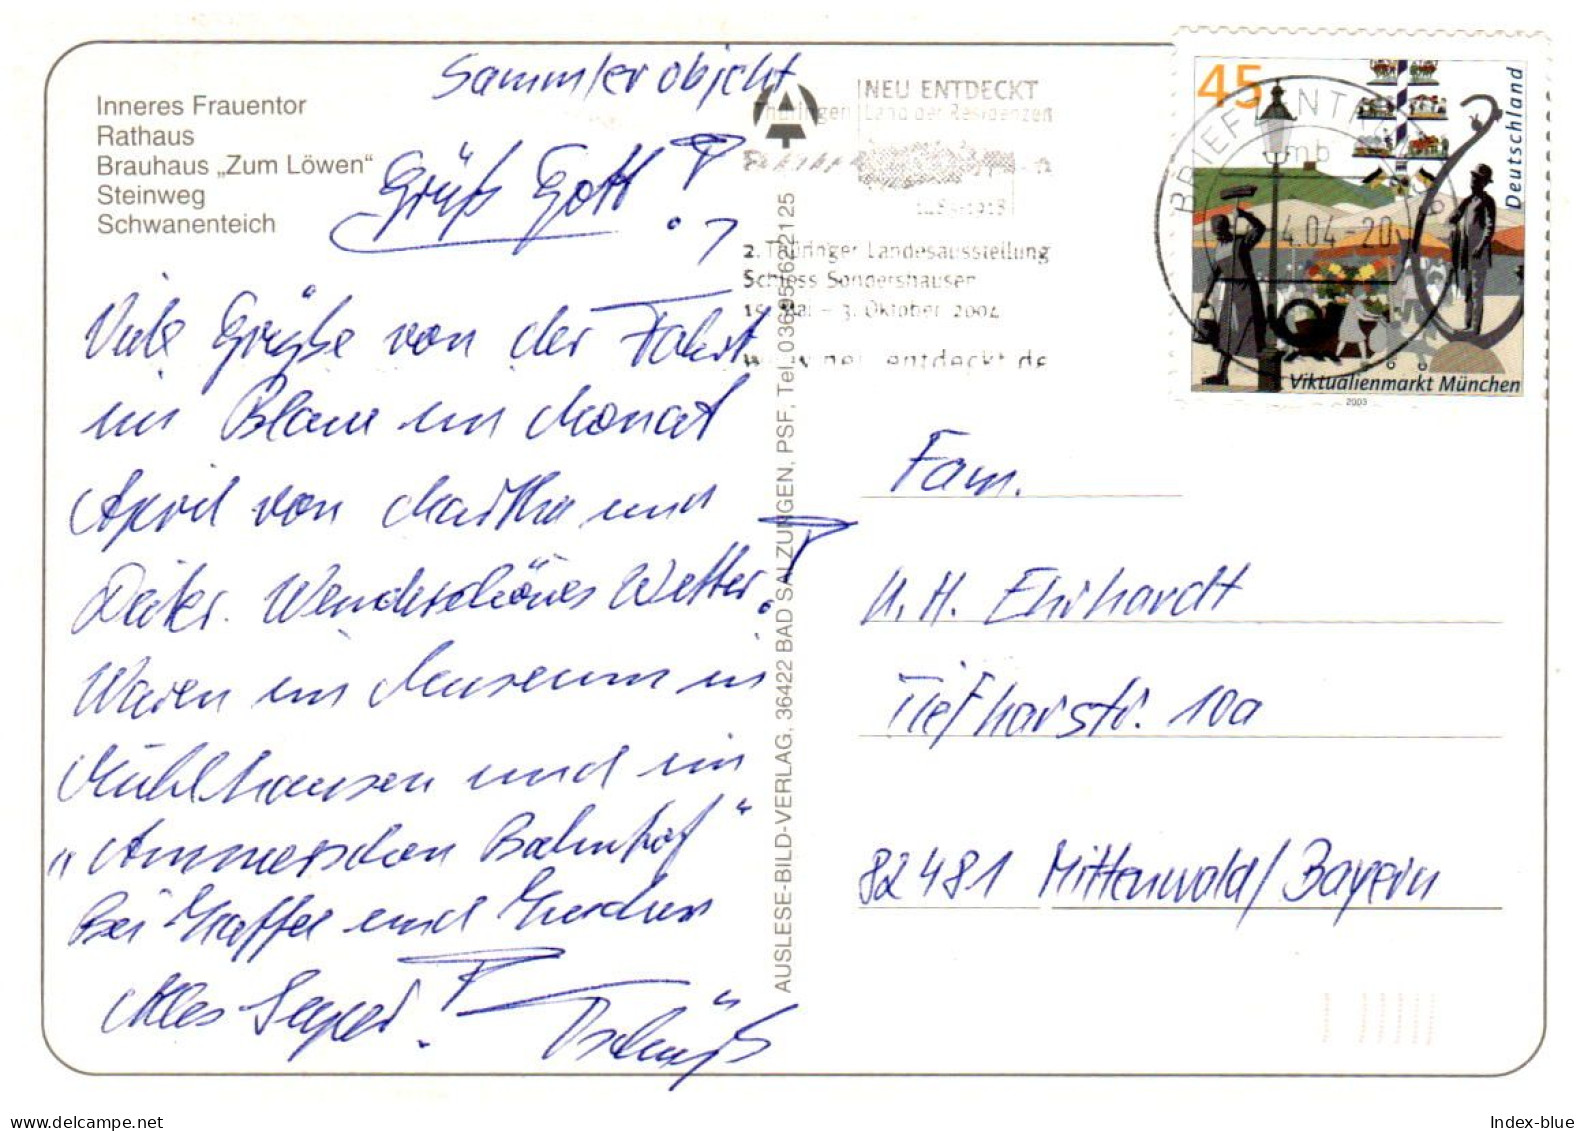 Sammlerobjekt
Inneres Frauentor
Rathaus
Brauhaus „Zum Löwen“
Steinweg
Schwanenteich
Grüß Gott!
Viele Grüße von der Fahrt
ins Blaue im Monat
April von Martha und
Dieter. Wunderschönes Wetter!
Waren im Museum in
Mühlhausen und im
„Ammerschen Bahnhof“
Bei Kaffee und Kuchen
Alles Super! Tschüß
AUSLESE-BILD-VERLAG, 36422 BAD SALZUNGEN, PSF, Tel. 03695/622125
NEU ENTDECKT
Thüringen Land der Residenzen
1485-1918
2. Thüringer Landesausstellung
Schloss Sondershausen
15. Mai – 3. Oktober 2004
www.neu-entdeckt.de
BRIEFZENTRUM
mb
4.04-20
45
Deutschland
Viktualienmarkt München
2003
Fam.
U. H. Ehrhardt
Tiefkarstr. 10a
82481 Mittenwald/Bayern
Index-blue